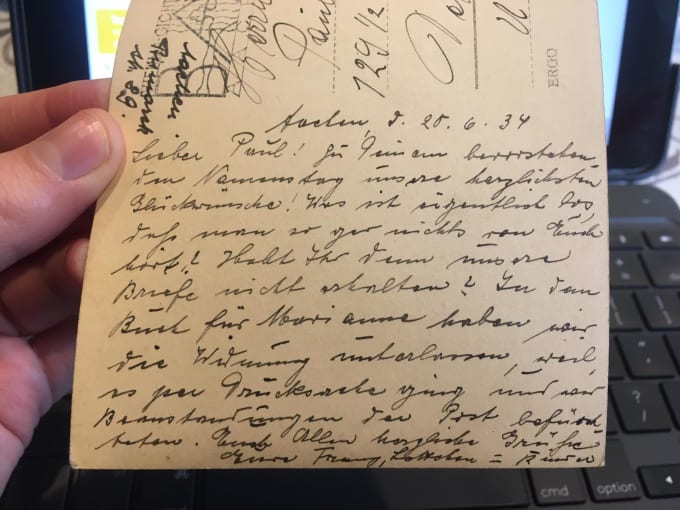 Aachen
Bismarck
str. 89.
Paul
129 1/2
ERGO
Aachen, d. 20. 6. 34
Lieber Paul! Zu Deinem bevorstehen-
den Namenstag unsere herzlichsten
Glückwünsche! Was ist eigentlich los,
daß man so gar nichts von Euch
hört? Habt Ihr denn unsere
Briefe nicht erhalten? In dem
Buch für Marianne haben wir
die Widmung unterlassen, weil
es per Drucksache ging und wir
Beanstandungen der Post befürch-
teten. Euch Allen herzliche Grüße
Eure Franz, Lottchen = Kinder
?
cmd
option